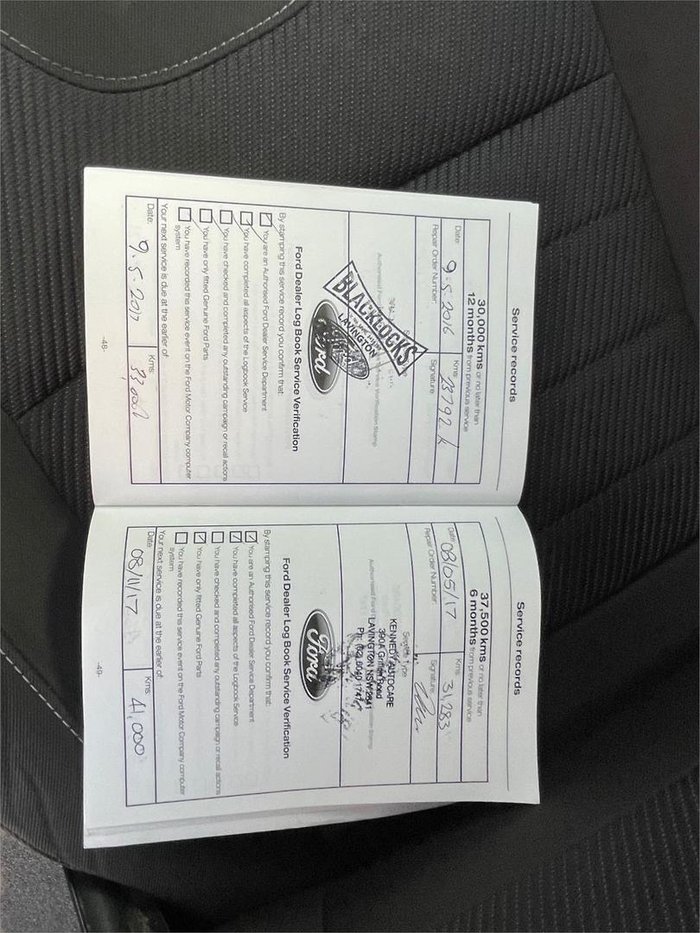 Service records
30,000 kms or no later than
12 months from previous service
Date: 9.5.2016 Kms: 23792 k
Repair Order Number: Signature:
BLACKLOCKS
LAVINGTON
Ford
Ford Dealer Log Book Service Verification
By stamping this service record you confirm that:
You are an Authorised Ford Dealer Service Department
You have completed all aspects of the Logbook Service
You have checked and completed any outstanding campaign or recall actions
You have only fitted Genuine Ford Parts
You have recorded this service event on the Ford Motor Company computer
system
Your next service is due at the earlier of:
Date: 9.5.2017 Kms:
-48-
Service records
37,500 kms or no later than
6 months from previous service
Date: 08/05/17 Kms: 31,283
Repair Order Number: Signature:
KENNEDY AUTOCARE
LAVINGTON NSW 2641
Ford
Ford Dealer Log Book Service Verification
By stamping this service record you confirm that:
You are an Authorised Ford Dealer Service Department
You have completed all aspects of the Logbook Service
You have checked and completed any outstanding campaign or recall actions
You have only fitted Genuine Ford Parts
You have recorded this service event on the Ford Motor Company computer
system
Your next service is due at the earlier of:
Date: 08/11/17 Kms: 41,000
-49-